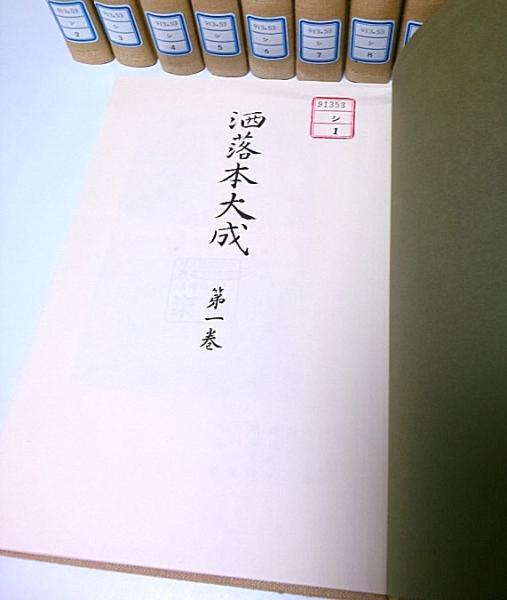 913.53
シ
2
913.53
シ
3
913.53
シ
4
913.53
シ
5
913.53
シ
6
913.53
シ
7
913.53
シ
8
91353
シ
1
洒落本大成
第一巻